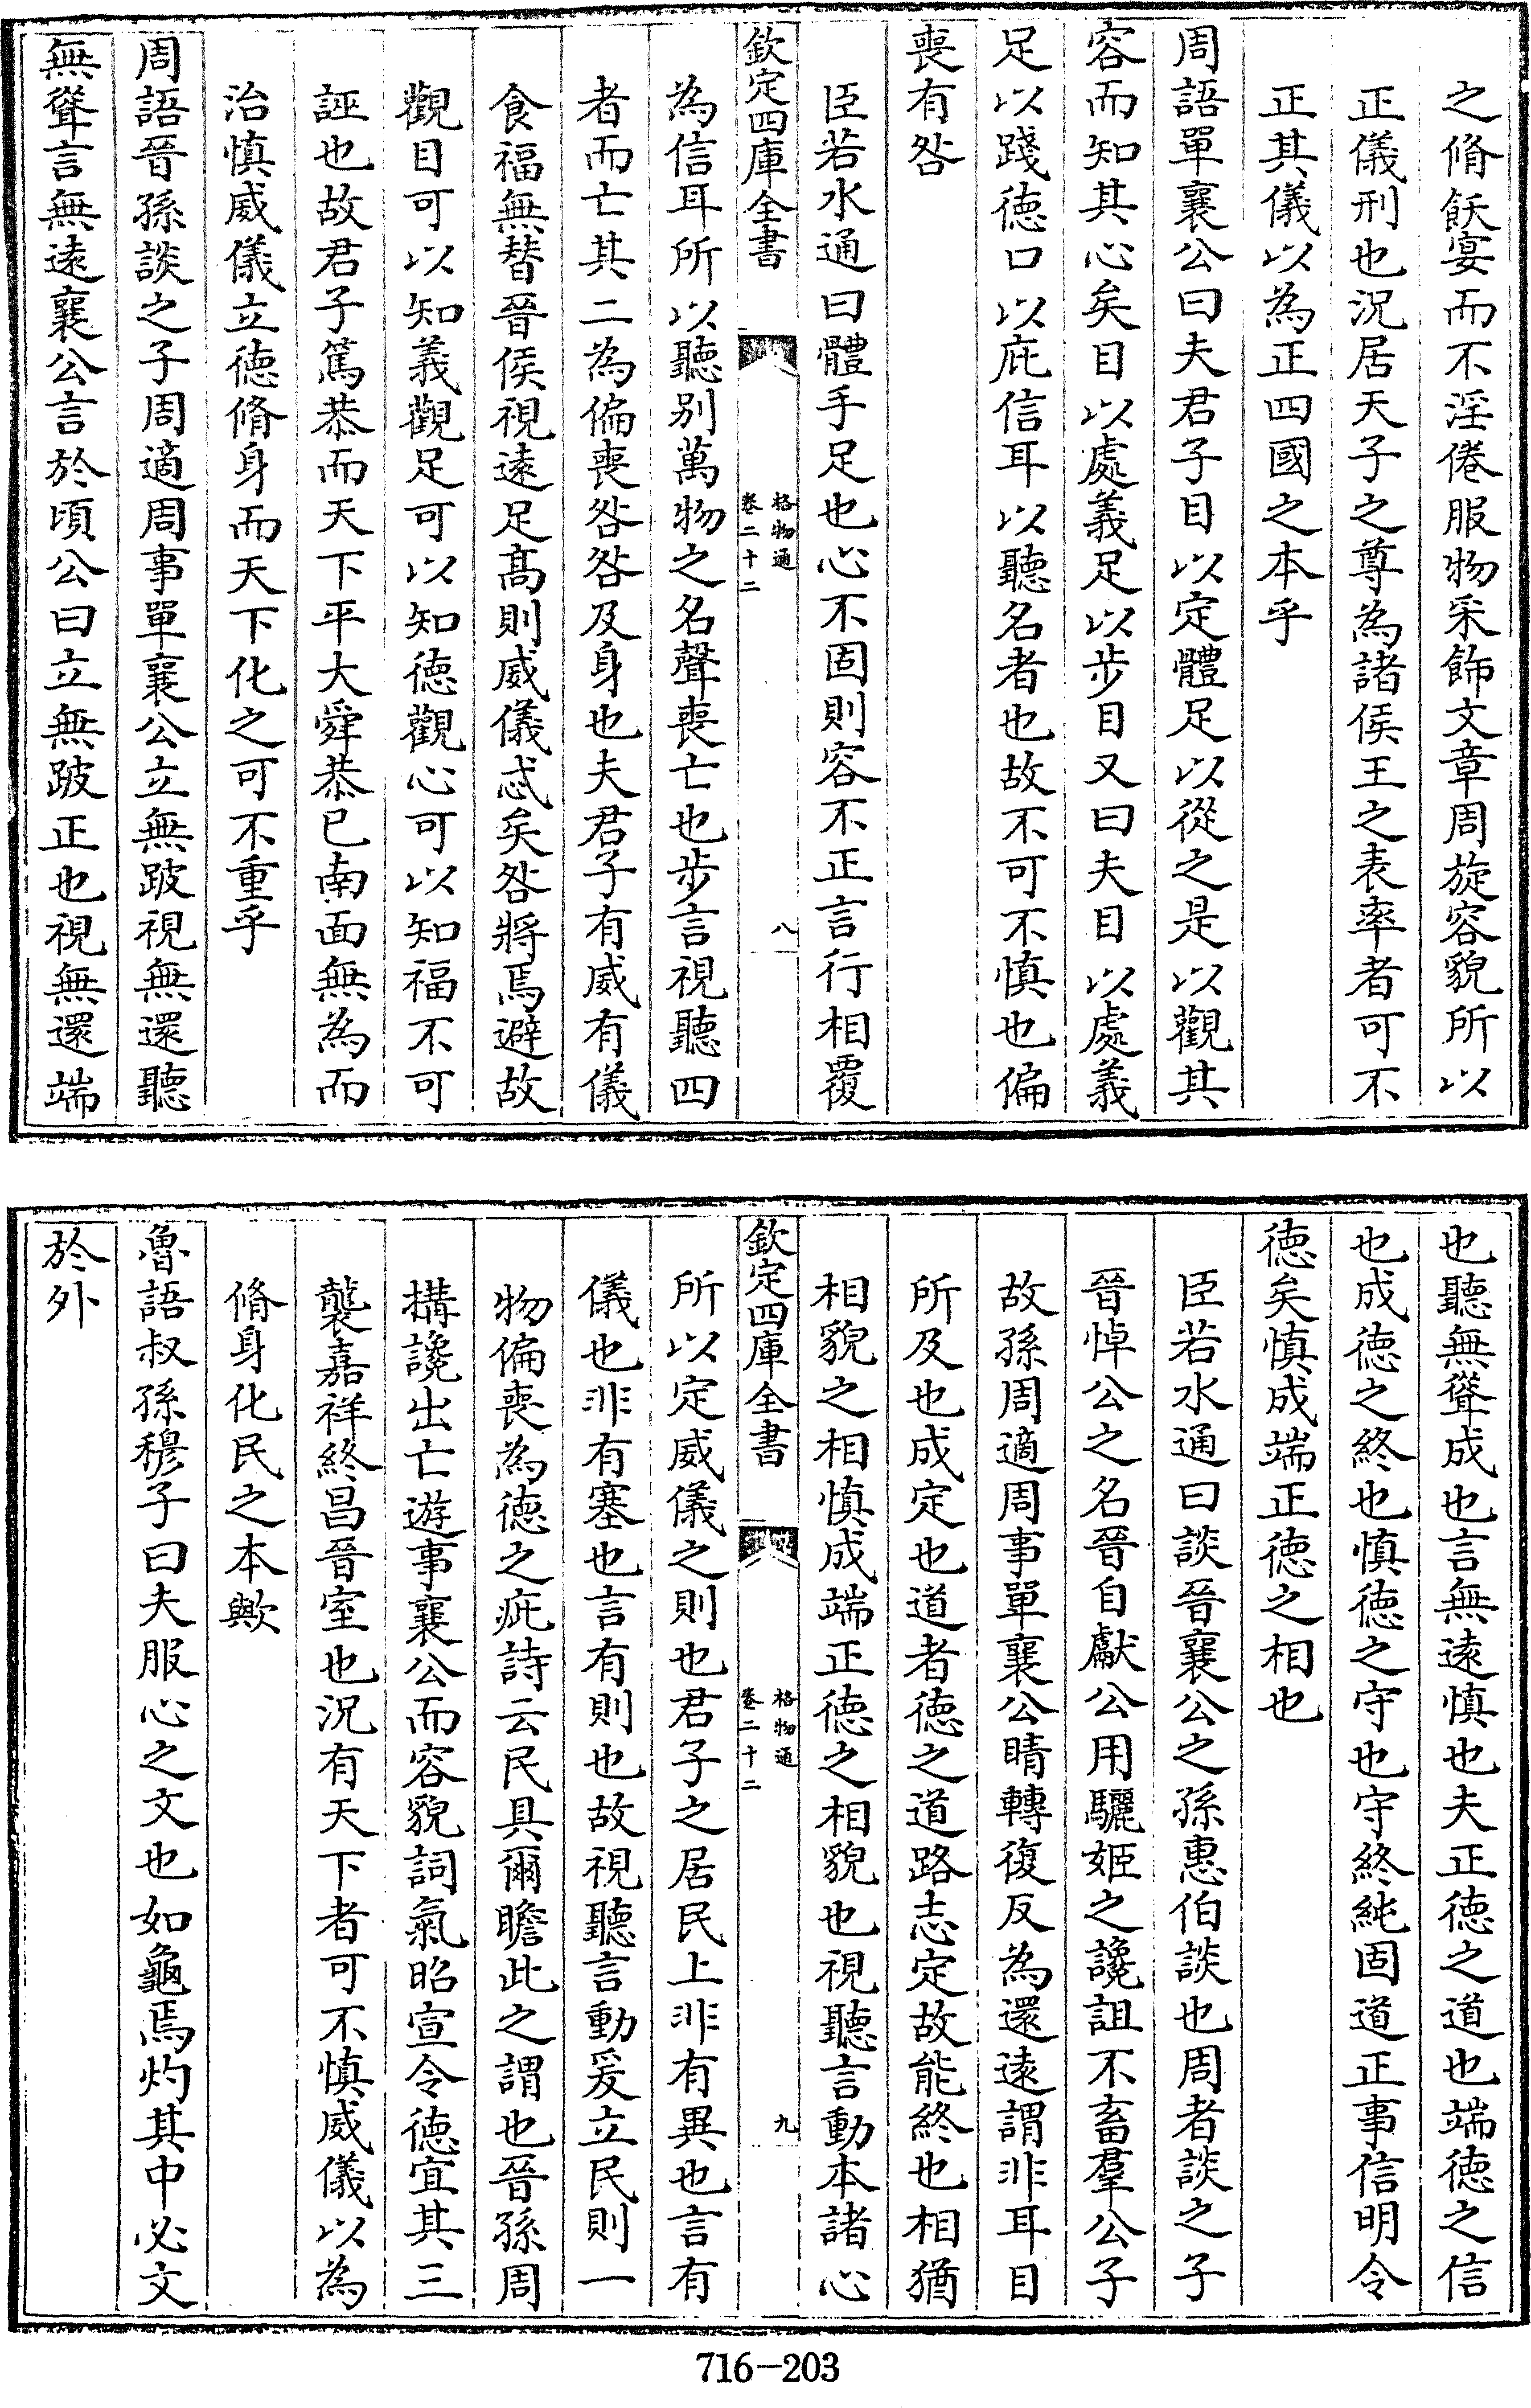 之脩飫宴而不淫倦服物采飾文章周旋容貌所以
正儀刑也況居天子之尊為諸侯王之表率者可不
正其儀以為正四國之本乎
周語單襄公曰夫君子目以定體足以從之是以觀其
容而知其心矣目以處義足以步目又曰夫目以處義
足以踐徳口以庇信耳以聽名者也故不可不慎也偏
喪有咎
臣若水通曰體手足也心不固則容不正言行相覆
欽定四庫全書
格物通
卷二十二
八
為信耳所以聽别萬物之名聲喪亡也步言視聽四
者而亡其二為偏喪咎咎及身也夫君子有威有儀
食福無替晉侯視遠足髙則威儀忒矣咎將焉避故
觀目可以知義觀足可以知徳觀心可以知福不可
誣也故君子篤恭而天下平大舜恭已南面無為而
治慎威儀立徳脩身而天下化之可不重乎
周語晉孫談之子周適周事單襄公立無跛視無還聽
無聳言無遠襄公言於頃公曰立無跛正也視無還端
也聽無聳成也言無遠慎也夫正徳之道也端徳之信
也成徳之終也慎徳之守也守終純固道正事信明令
徳矣慎成端正徳之相也
臣若水通曰談晉襄公之孫惠伯談也周者談之子
晉悼公之名晉自獻公用驪姬之讒詛不畜羣公子
故孫周適周事單襄公睛轉復反為還遠謂非耳目
所及也成定也道者徳之道路志定故能終也相猶
相貌之相慎成端正徳之相貌也視聽言動本諸心
欽定四庫全書
格物通
卷二十二
九
所以定威儀之則也君子之居民上非有異也言有
儀也非有塞也言有則也故視聽言動爰立民則一
物偏喪為徳之疵詩云民具爾瞻此之謂也晉孫周
搆讒出亡遊事襄公而容貌詞氣昭宣令徳宜其三
襲嘉祥終昌晉室也況有天下者可不慎威儀以為
脩身化民之本歟
魯語叔孫穆子曰夫服心之文也如龜焉灼其中必文
於外
716-203